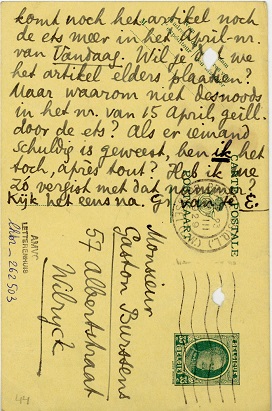 komt noch het artikel noch
de ets meer in het April-nr.
van Vandaag. Wil je dat we
het artikel elders plaatsen?
Maar waarom niet desnoods
in het nr. van 15 April, geïll.
door de ets? Als er iemand
schuldig is geweest, ben ik het
toch, après tout? Heb ik me
zo vergist met dat nummer?
Kijk het eens na.
CARTE POSTALE
POSTKAART
Monsieur
Gaston Burssens
57 Albertstraat
Wilryck
AMVC
LETTERENHUIS
BELGIE
BELGIQUE
44